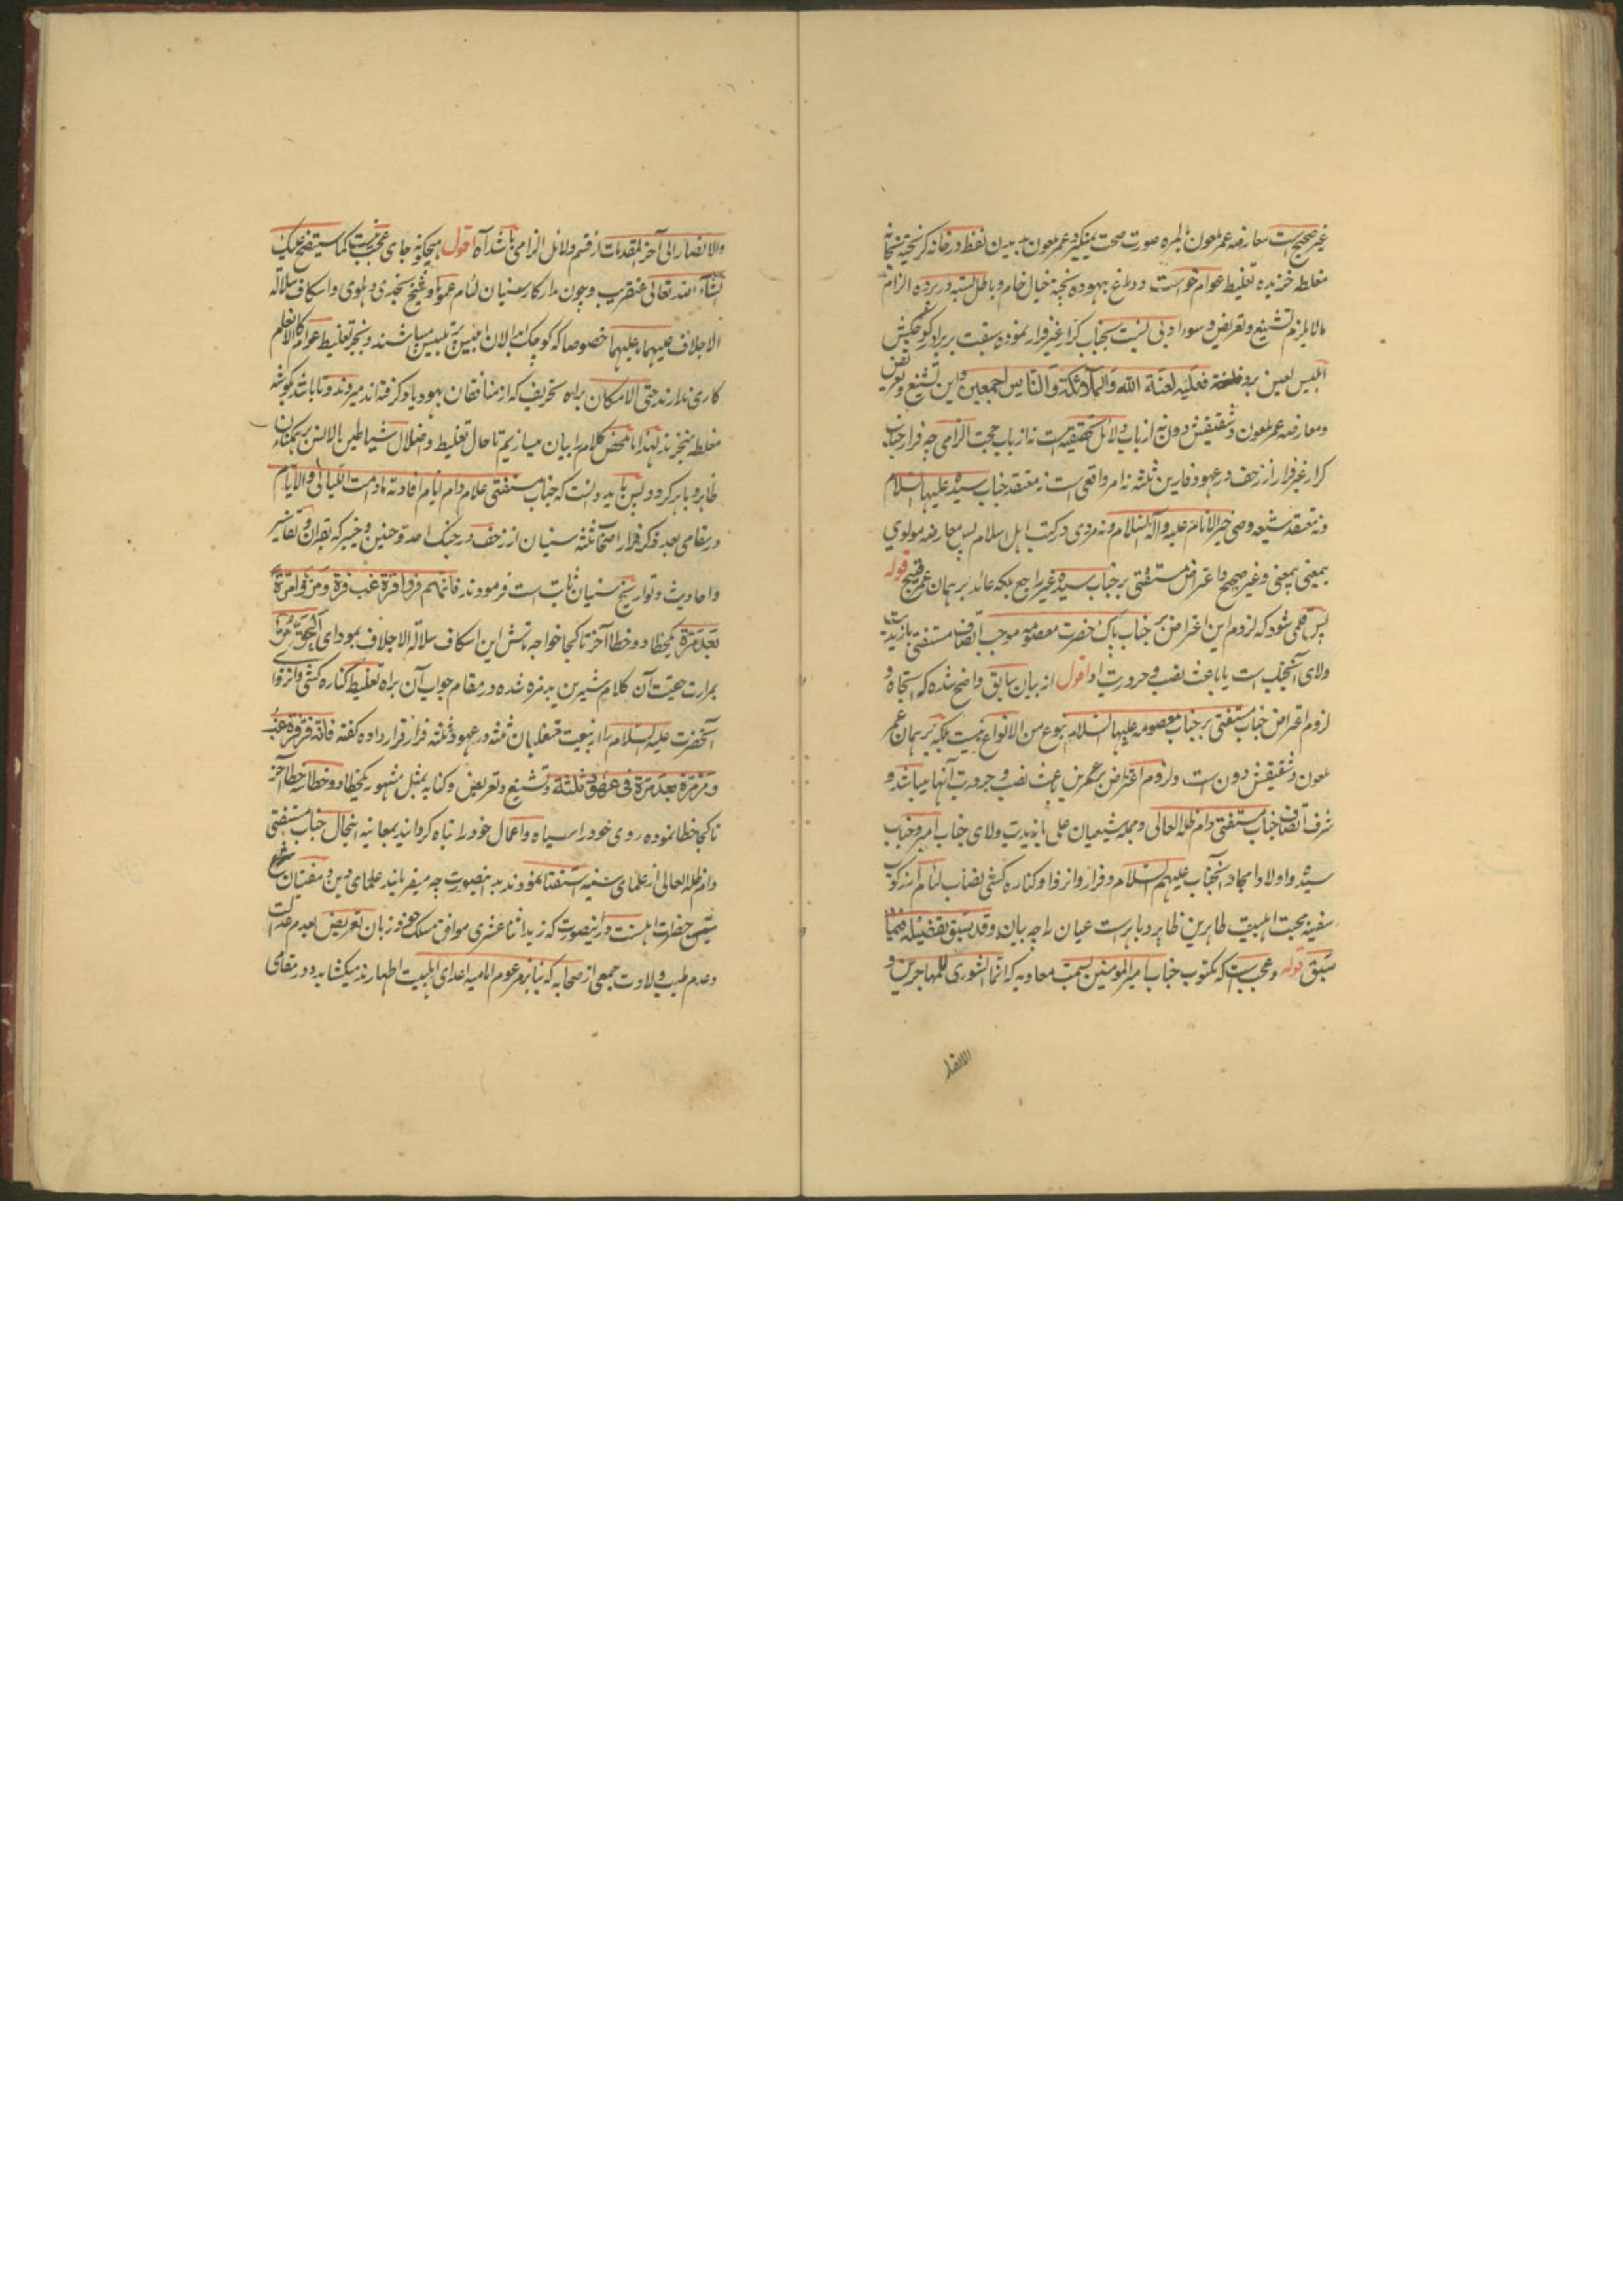 غیر صحیح است معارضه عمر ملعون بالمره صورت صحت نمیگیرد عمر ملعون بدیدن لفظ در خانه گریخته
مغلطه خزیده تغلیط عوام خواست و دماغ بیهوده پخته خیال خام و باطل بسته در پرده الزام
مالا یلزم تشنیع و تعریض و سوء ادبی نسبت بجناب کرار غیر فرار نموده سبقت بر برادر کوچکش
ابلیس لعین برد فعلیه لعنة الله والملائکة والناس اجمعین و این تشنیع و تعریض
و معارضه عمر ملعون و شقیقش دون نه از باب دلائل تحقیقیه است نه از باب حجت الزامی چه فرار جناب
کرار غیر فرار از زحف در عهود فارین ثلثه نه امر واقعی است نه معتقد جناب سیده علیها السلام
و نه معتقد شیعه وصی خیر الانام علیه وآله السلام و نه مروی در کتب اهل اسلام پس معارضه مولوی
بمعنی بیمعنی و غیر صحیح و اعتراض مستفتی بر جناب سیده غیر راجع بلکه عائد بر همان عمر قبیح قوله
پس تأمل شود که لزوم این اعتراض بر جناب پاک حضرت معصومه موجب اتصاف مستفتی
ولای آنجناب است یا باعث نصب و حروریت او اقول از بیان سابق واضح شده که
لزوم اعتراض جناب مستفتی بر جناب معصومه علیها السلام بنوع من الانواع نیست بلکه بر همان عمر
ملعون و شقیقش دون است و لزوم اعتراض بر عمرین باعث نصب و حروریت آنها میباشد و
شرف اتصاف جناب مستفتی دام ظله العالی و جمله شیعیان علی بازدیت ولای جناب امیر و جناب
سیده و اولاد امجاد آنجناب علیهم السلام و فرار و انزوا و کناره کشی نصاب لئام از رکوب
سفینه محبت اهلبیت طاهرین ظاهر و باهر است عیان را چه بیان و قد سبق تفصیله فیما
سبق قوله و عجب است که مکتوب جناب امیر المومنین بسمت معاویه که انما الشوری للمهاجرین و
الانصار
والانصار الی آخر المقدمات از قسم دلائل الزامی باشد آه اقول هیچگونه جای عجب نیست کما سیتضح علیک
انشاء الله تعالی عنقریب و چون مدار کار سنیان لئام عموما و شیخ نجدی دهلوی و اسکاف سلالة
الاجلاف علیهما ما علیهما خصوصا که کوچک ابدالان ابلیس پر تلبیس میباشند و بجز تغلیط عوام کالانعام
کاری ندارند حتی الامکان براه تحریف که از منافقان یهود یاد گرفته اند میروند و تا باشد بگوشه
مغلطه میخزند لهذا ما محض کلام را بیان میسازیم تا حال تغلیط و اضلال شیاطین الانس بر همگنان
ظاهر و باهر گردد پس باید دانست که جناب مستفتی علام دام ایام افادته ما دامت اللیالی والایام
در مقامی بعد ذکر فرار اصحاب ثلثه سنیان از زحف در جنگ احد و حنین و خیبر که بقران و تفاسیر
و احادیث و تواریخ سنیان ثابت است فرمودند فانهم فروا فرة غب فرة و مروا مرة
بعد مرة یکخطا دو خطا آخر تا کجا خواجه تاش این اسکاف سلالة الاجلاف بمودای الحق مر
بمرارت حقیت آن کلام شیرین بدمزه شده در مقام جواب آن براه تغلیط کناره کشی و انزوای
آنحضرت علیه السلام را از بیعت متغلبان ثلثه در عهود ثلثه فرار قرار داده گفته فانه فر فرة غب
و مر مرة بعد مرة فی عهود ثلثة و تشنیع و تعریض و کنایه بمثل مشهور یکخطا دو خطا سه خطا آخر
تا کجا خطا نموده روی خود را سیاه و اعمال خود را تباه گردانید بمعاینه اینحال جناب مستفتی
دام ظله العالی از علمای سنیه استفتا نمودند بدینصورت چه میفرمایند علمای دین و مفتیان شرع
متین حضرات اهلسنت در اینصورت که زید اثنا عشری موافق مسلک خود زبان تعریض بعدم عدالت
و عدم طیب ولادت جمعی از صحابه که بنا بر مزعوم امامیه اعدای اهلبیت اطهارند میکشاید و در مقامی